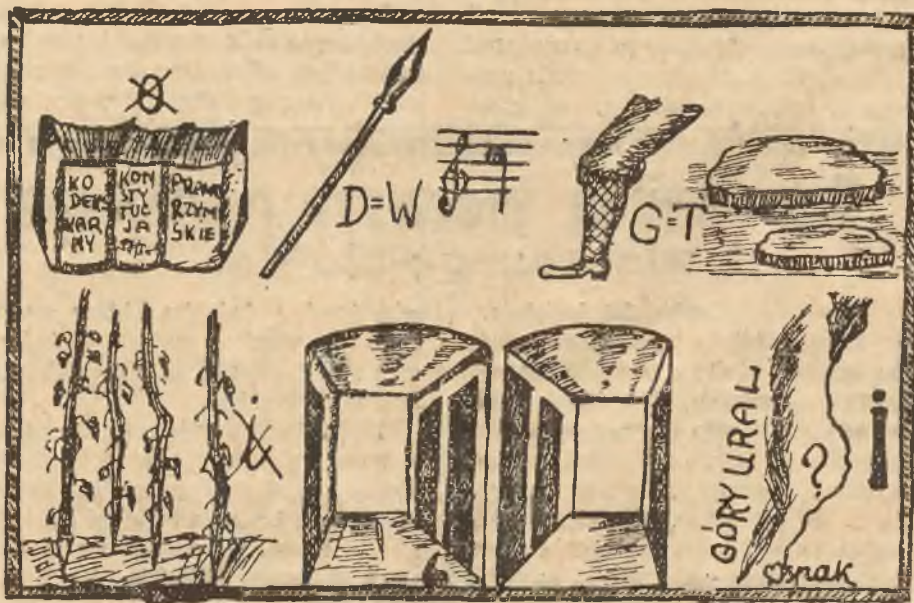 KO
DEKS
KAR
NY
KON
STY
TUC
JA
PRAWO
RZYM
SKIE
D=W
G=T
GÓRY URAL
?
i
wspak